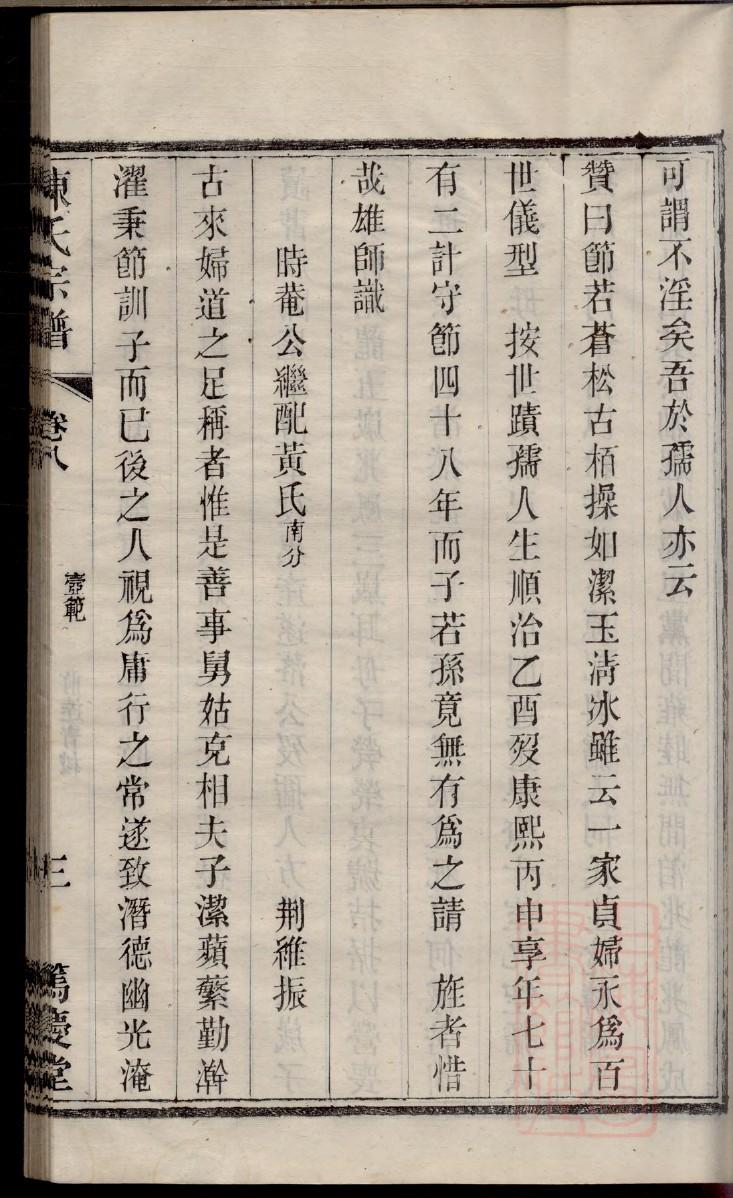 可謂不淫矣吾於孺人亦云
贊曰節若蒼松古栢操如潔玉清冰雖云一家貞婦永爲百
世儀型　按世蹟孺人生順治乙酉歿康熙丙申享年七十
有二計守節四十八年而子若孫竟無有爲之請　旌者惜
哉雄師識
時菴公繼配黃氏南分　荆維振
古來婦道之足稱者惟是善事舅姑克相夫子潔蘋蘩勤澣
濯秉節訓子而已後之人視爲庸行之常遂致潛德幽光淹
陳氏宗譜　卷八　壼範　三　篤慶堂